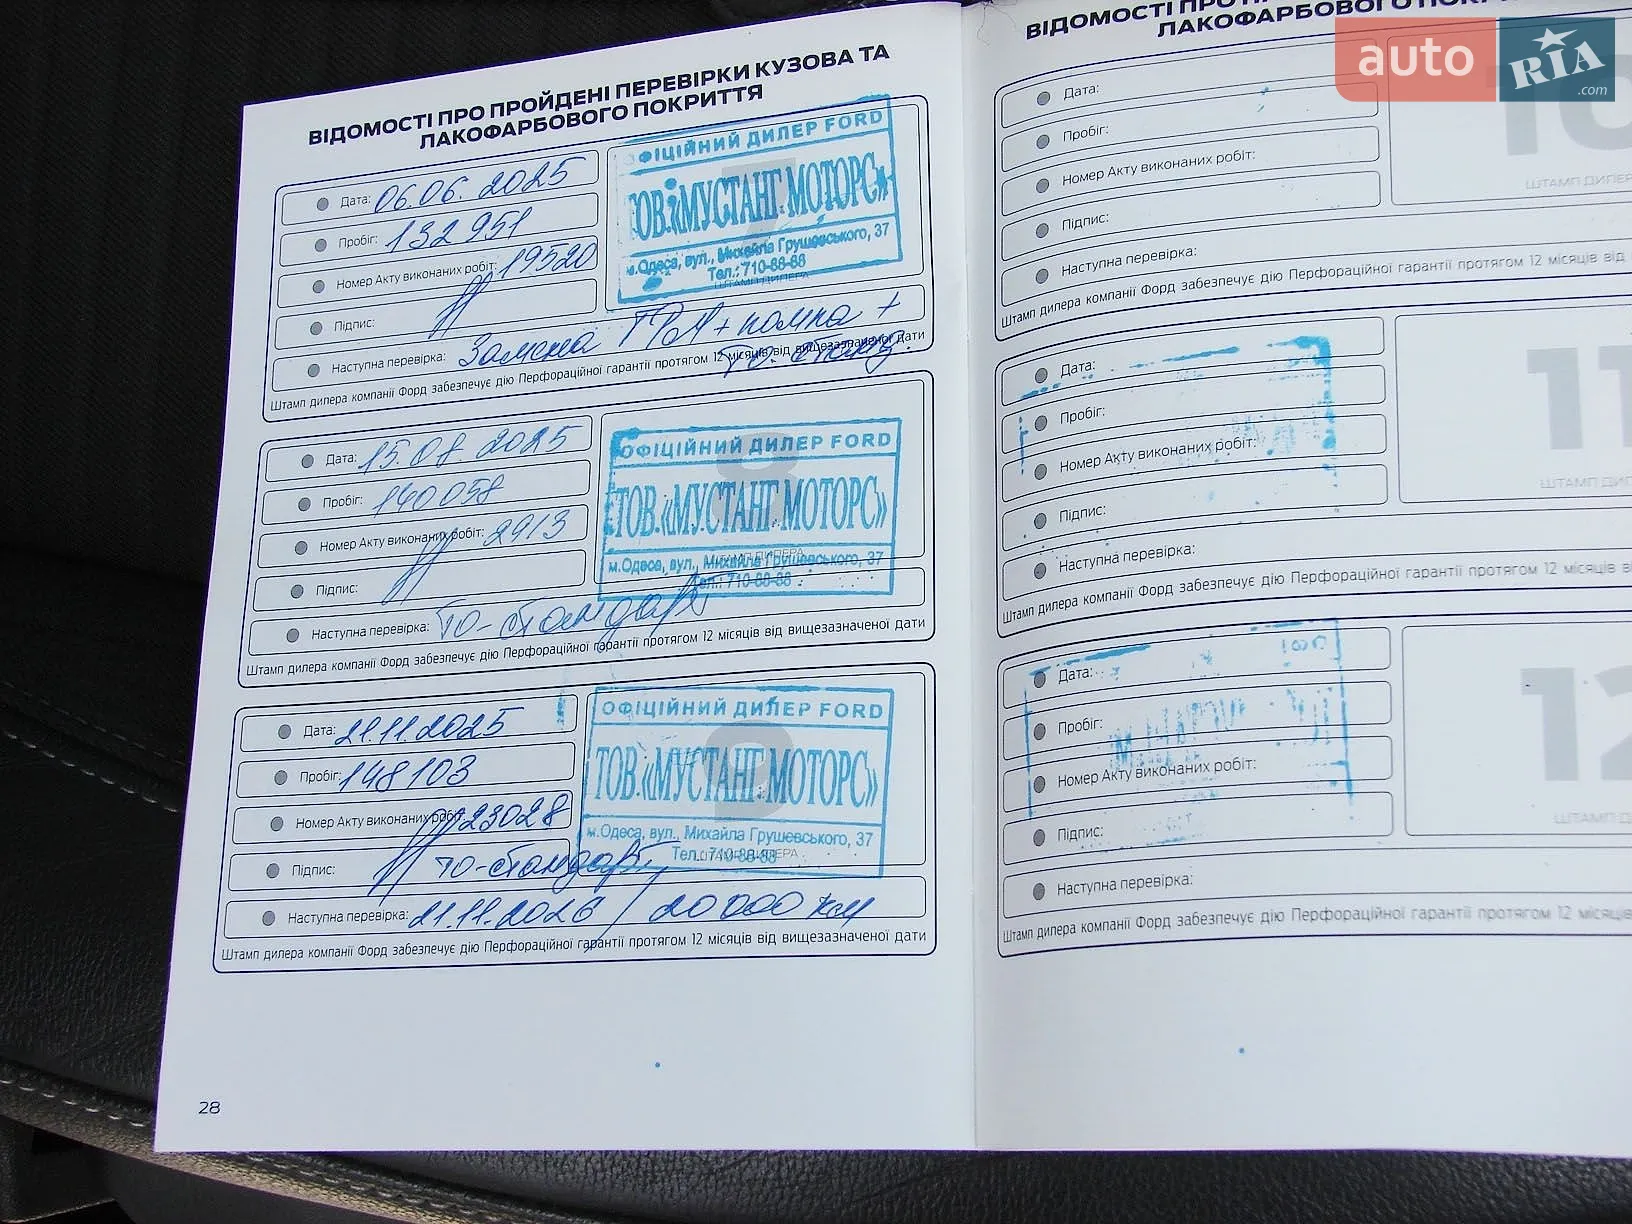 ВІДОМОСТІ ПРО ПРОЙДЕНІ ПЕРЕВІРКИ КУЗОВА ТА
ЛАКОФАРБОВОГО ПОКРИТТЯ
Дата: 06.06.2025
Пробіг: 132951
Номер Акту виконаних робіт: 19520
Підпис:
Наступна перевірка: Замена ГРМ + помпа +
ТО-станд.
Штамп дилера компанії Форд забезпечує дію Перфораційної гарантії протягом 12 місяців від вищезазначеної дати
7
ОФІЦІЙНИЙ ДИЛЕР FORD
ТОВ.«МУСТАНГ МОТОРС»
м.Одеса, вул., Михайла Грушевського, 37
Тел.: 710-88-88
ШТАМП ДИЛЕРА
Дата: 15.08.2025
Пробіг: 140058
Номер Акту виконаних робіт: 2913
Підпис:
Наступна перевірка: ТО-стандарт
Штамп дилера компанії Форд забезпечує дію Перфораційної гарантії протягом 12 місяців від вищезазначеної дати
8
ОФІЦІЙНИЙ ДИЛЕР FORD
ТОВ.«МУСТАНГ МОТОРС»
м.Одеса, вул., Михайла Грушевського, 37
Тел.: 710-88-88
ШТАМП ДИЛЕРА
Дата: 21.11.2025
Пробіг: 148103
Номер Акту виконаних робіт: 23028
Підпис: ТО-стандарт
Наступна перевірка: 21.11.2026 / 20 000 км
Штамп дилера компанії Форд забезпечує дію Перфораційної гарантії протягом 12 місяців від вищезазначеної дати
9
ОФІЦІЙНИЙ ДИЛЕР FORD
ТОВ.«МУСТАНГ МОТОРС»
м.Одеса, вул., Михайла Грушевського, 37
Тел.: 710-88-88
ШТАМП ДИЛЕРА
28
ВІДОМОСТІ
ЛАКОФАРБОВОГО
Дата:
Пробіг:
Номер Акту виконаних робіт:
Підпис:
Наступна перевірка:
Штамп дилера компанії Форд забезпечує дію Перфораційної гарантії протягом 12 місяців від
10
ШТАМП ДИЛЕРА
Дата:
Пробіг:
Номер Акту виконаних робіт:
Підпис:
Наступна перевірка:
Штамп дилера компанії Форд забезпечує дію Перфораційної гарантії протягом 12 місяців
11
ШТАМП
Дата:
Пробіг:
Номер Акту виконаних робіт:
Підпис:
Наступна перевірка:
Штамп дилера компанії Форд забезпечує дію Перфораційної гарантії протягом 12 місяців
12
ШТАМП
auto RIA
.com